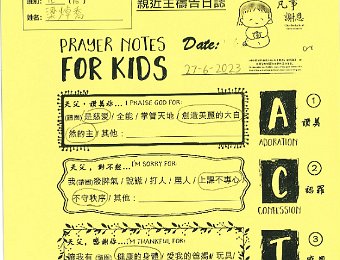 姓名: 梁焯喬
親近主禱告日誌
凡事
謝恩
PRAYER NOTES
FOR KIDS
Date:
27-6-2023
天父,讚美祢... I PRAISE GOD FOR:
(請圈) 是慈愛 / 全能 / 掌管天地 / 創造美麗的大自
然的主 / 其他:
A
ADORATION
①
讚美
天父,對不起... I'M SORRY FOR:
我(請圈)發脾氣 / 說謊 / 打人 / 罵人 / 上課不專心
不守秩序 / 其他:
C
CONFESSION
②
認罪
天父,感謝祢... I'M THANKFUL FOR:
讓我有(請圈) 健康的身體 / 愛我的爸媽 / 玩具 /
T
③